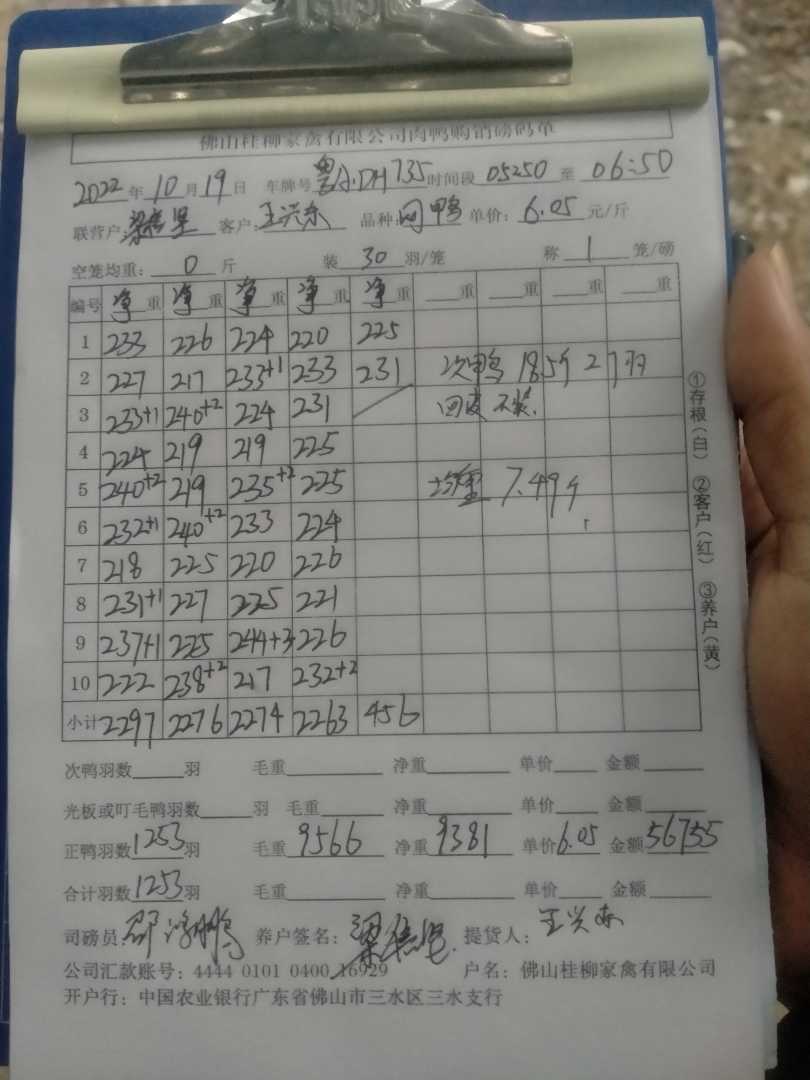 佛山桂柳家禽有限公司肉鸭购销磅码单
2022年10月19日 车牌号粤A·DH735时间段 05:50 至 06:50
联营户: 客户:王兴东 品种: 鸭 单价: 6.05 元/斤
空笼均重: 0 斤 装 30 羽/笼 称 1 笼/磅
编号 净重 净重 净重 净重 净重 重 重 重 重
1 233 226 224 220 225
2 227 217 233+1 233 231 次鸭 185斤 27羽
3 233+1 240+2 224 231 不装
4 224 219 219 225
5 240+2 219 235+2 225 均重 7.49斤
6 232+1 240+2 233 224
7 218 225 220 226
8 231+1 227 225 221
9 237+1 225 244+3 226
10 222 238+2 217 232+2
小计 2297 2276 2274 2263 456
①存根(白) ②客户(红) ③养户(黄)
次鸭羽数 羽 毛重 净重 单价 金额
光板或叮毛鸭羽数 羽 毛重 净重 单价 金额
正鸭羽数1253羽 毛重 9566 净重 9381 单价6.05 金额56755
合计羽数1253羽 毛重 净重 单价 金额
司磅员 养户签名: 提货人: 王兴东
公司汇款账号: 4444 0101 0400 16929 户名: 佛山桂柳家禽有限公司
开户行: 中国农业银行广东省佛山市三水区三水支行